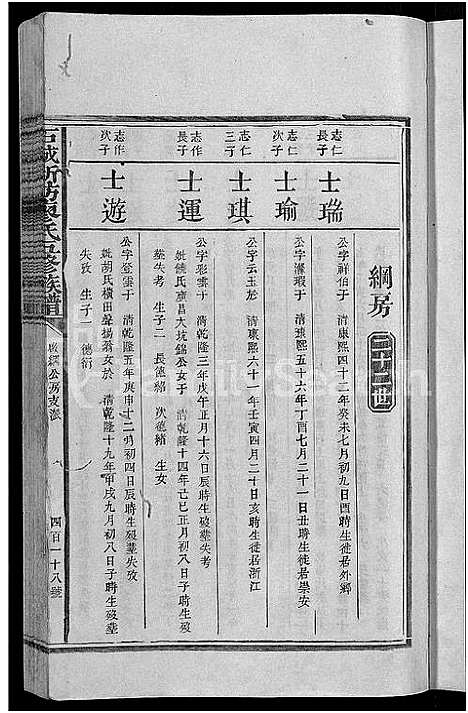 綱房 二十二世
志仁長子 士瑞
公字祥伯于 清康熙四十二年癸未七月初九日酉時生徙居外鄉
志仁次子 士瑜
公字 瑕于 清康熙五十六年丁酉七月二十一日丑時生徙居崇安
三子 士琪
公字云玉於 清康熙六十一年壬寅四月二十日亥時生徙居浙江
志作長子 士運
公字彩雲于 清乾隆三年戊午正月十六日辰時生歿墓失考
娶饒氏 昌大坑錦公女于 清乾隆十四年己巳正月初八日子時生歿
墓失考 生子二 長德紹 次德緒 生女
志作次子 士遊
公字登雲于 清乾隆五年庚申十二月初四日辰時生歿墓失攷
娶胡氏橫田聲揚翁女於 清乾隆十九年甲戌九月初八日子時生歿墓
失攷 生子一 德衍
石城 氏 修族譜
公房支派
四百一十八號